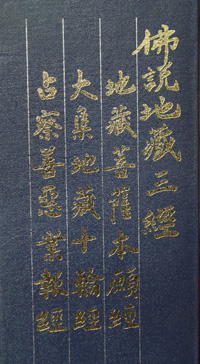 佛說地藏三經
地藏菩薩本願經
大集地藏十輪經
占察善惡業報經